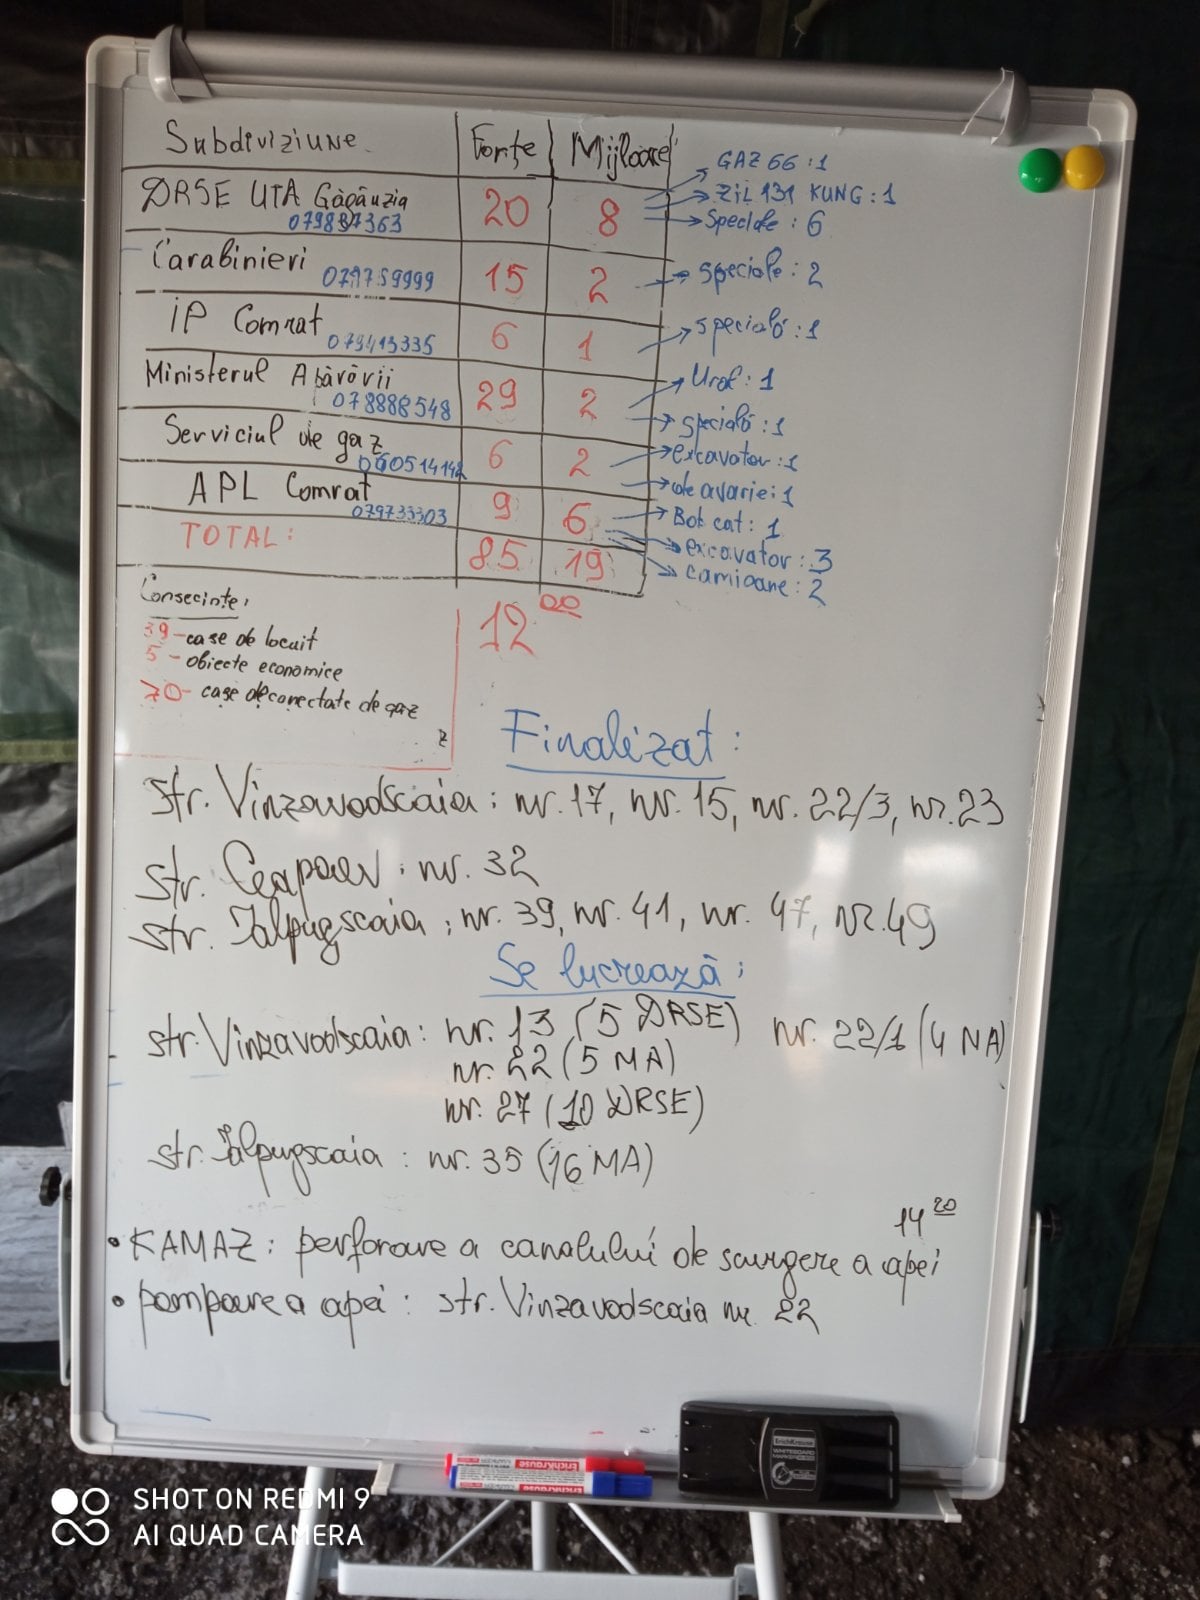 Subdiviziune Forțe Mijloace
DRSE UTA Găgăuzia 20 8
GAZ 66 : 1
ZiL 131 KUNG : 1
Speciale : 6
Carabinieri 15 2 speciale : 2
079759999
IP Comrat 6 1 specială : 1
079413335
Ministerul Apărării 29 2
Ural : 1
078888548
specială : 1
Serviciul de gaz 6 2
excavator : 1
060514142
de avarie : 1
APL Comrat 9 6
Bob cat : 1
079733303
excavator : 3
camioane : 2
TOTAL : 85 19
Consecințe:
39 - case de locuit
5 - obiecte economice
70 - case deconectate de gaz
z
12 00
Finalizat :
str. Vinzavodscaia : nr. 17, nr. 15, nr. 22/3, nr. 23
str. Ceapaev : nr. 32
str. Ialpugscaia : nr. 39, nr. 41, nr. 47, nr. 49
Se lucrează :
str. Vinzavodscaia : nr. 13 (5 DRSE) nr. 22/1 (4 MA)
nr. 22 (5 MA)
nr. 27 (10 DRSE)
str. Ialpugscaia : nr. 35 (16 MA)
14 20
• KAMAZ : perforare a canalului de scurgere a apei
• pompare a apei : str. Vinzavodscaia nr. 22
ErichKrause
WHITEBOARD
ErichKrause
ErichKrause
SHOT ON REDMI 9
AI QUAD CAMERA